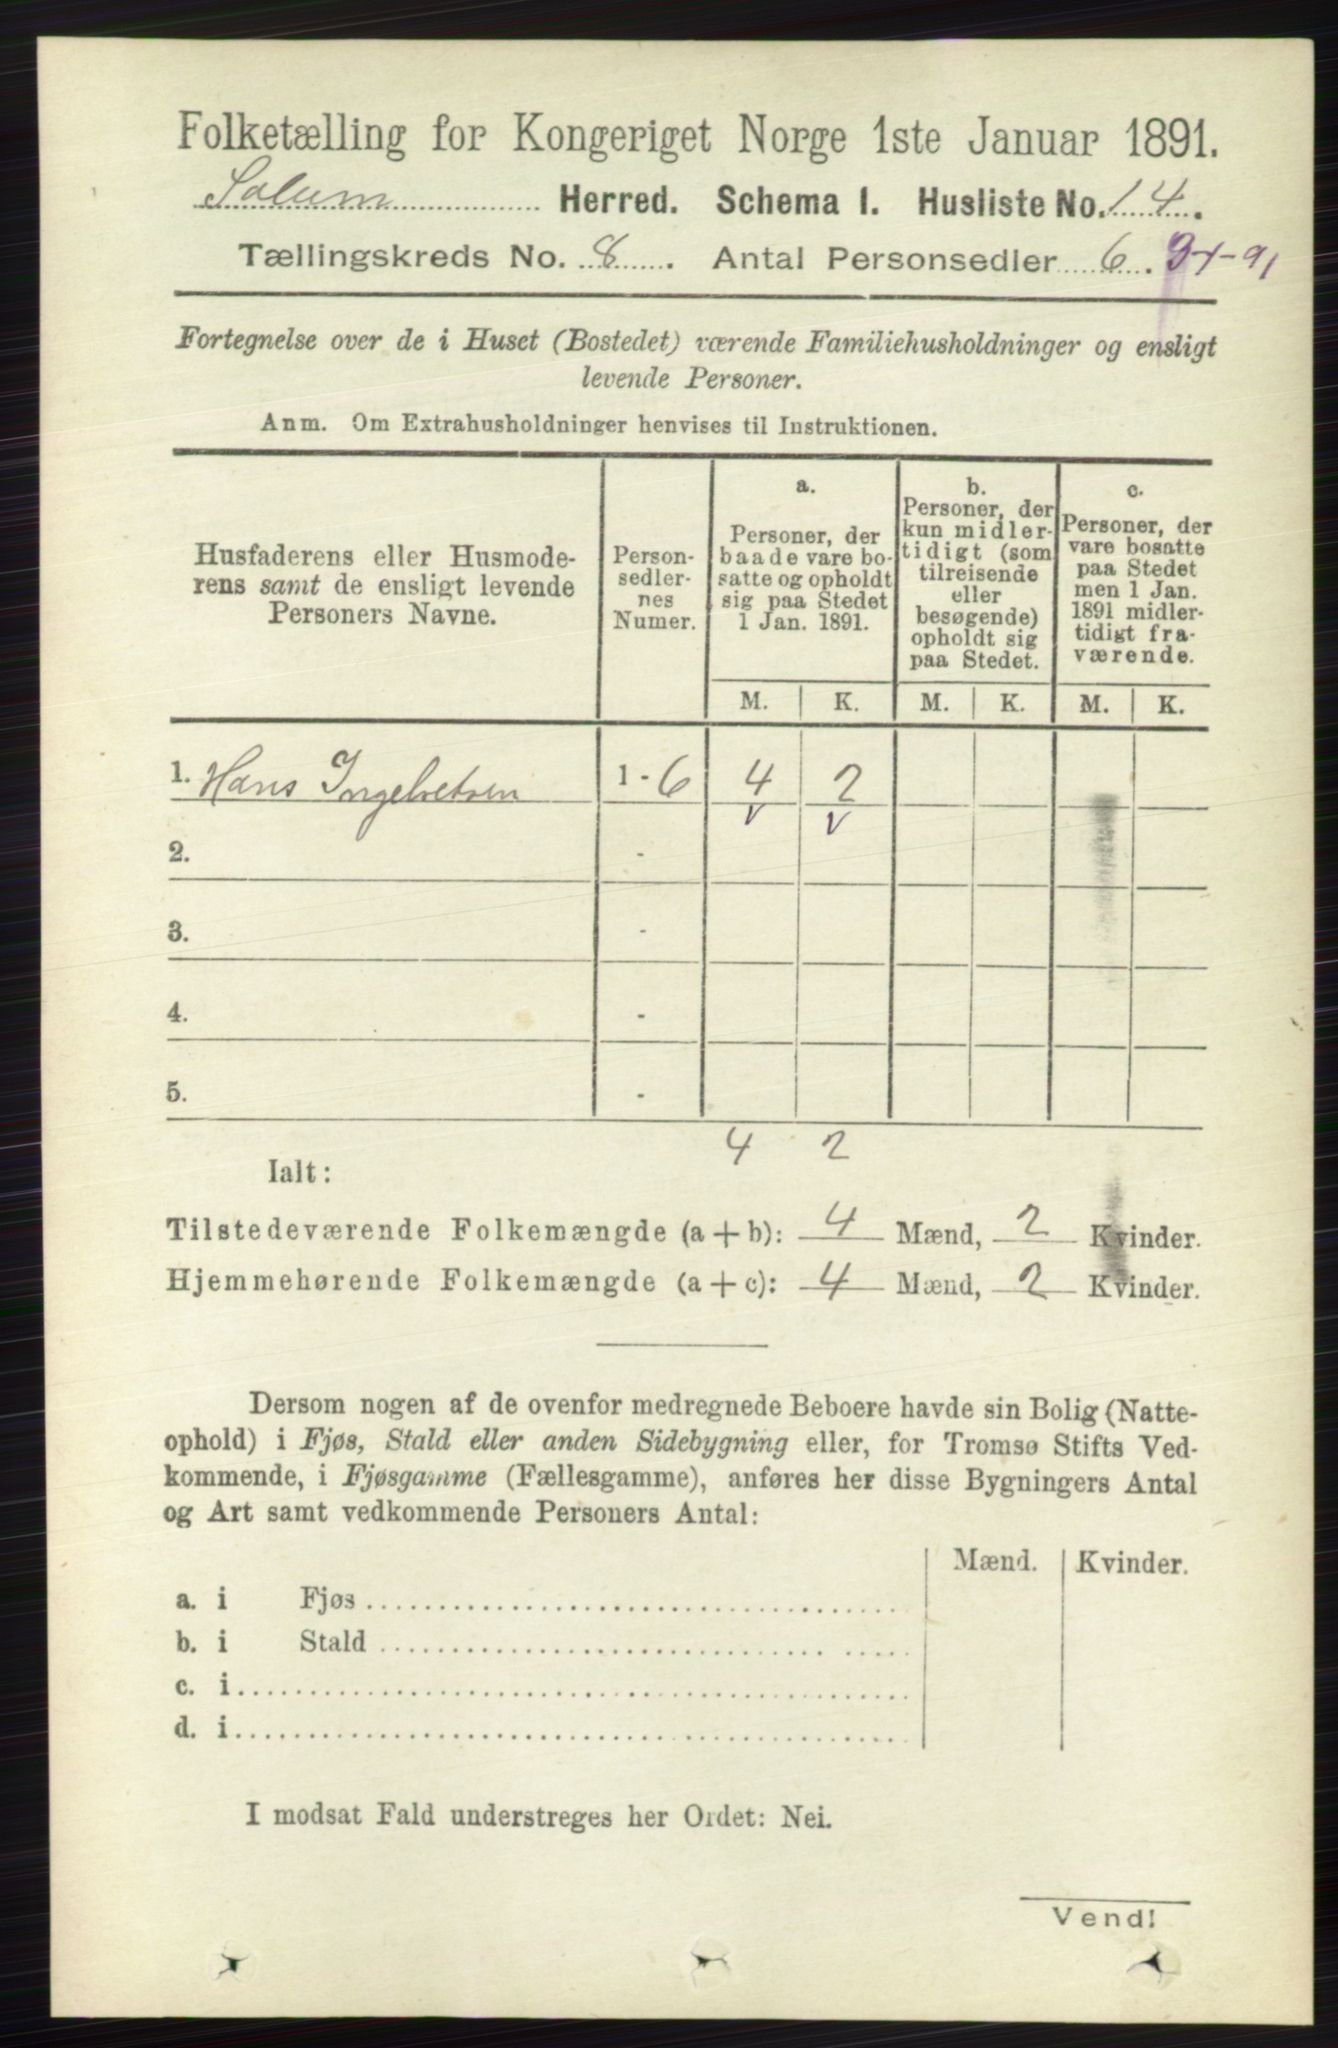 Folketælling for Kongeriget Norge 1ste Januar 1891.
Solum Herred. Schema I. Husliste No. 14.
Tællingskreds No. 8. Antal Personsedler 6.
Fortegnelse over de i Huset (Bostedet) værende Familiehusholdninger og ensligt
levende Personer.
Anm. Om Extrahusholdninger henvises til Instruktionen.
Husfaderens eller Husmode-
rens samt de ensligt levende
Personers Navne.
Person-
sedler-
nes
Numer.
a.
Personer, der
baade vare bo-
satte og opholdt
sig paa Stedet
1 Jan. 1891.
b.
Personer, der
kun midler-
tidigt (som
tilreisende
eller
besøgende)
opholdt sig
paa Stedet.
c.
Personer, der
vare bosatte
paa Stedet
men 1 Jan.
1891 midler-
tidigt fra-
værende.
M. K. M. K. M. K.
1. Hans Ingebretsen 1 - 6 4 2
v v
2. -
3. -
4. -
5. -
4 2
Ialt:
Tilstedeværende Folkemængde (a + b): 4 Mænd, 2 Kvinder.
Hjemmehørende Folkemængde (a + c): 4 Mænd, 2 Kvinder.
Dersom nogen af de ovenfor medregnede Beboere havde sin Bolig (Natte-
ophold) i Fjøs, Stald eller anden Sidebygning eller, for Tromsø Stifts Ved-
kommende, i Fjøsgamme (Fællesgamme), anføres her disse Bygningers Antal
og Art samt vedkommende Personers Antal:
Mænd. Kvinder.
a. i Fjøs
b. i Stald
c. i
d. i
I modsat Fald understreges her Ordet: Nei.
Vend!